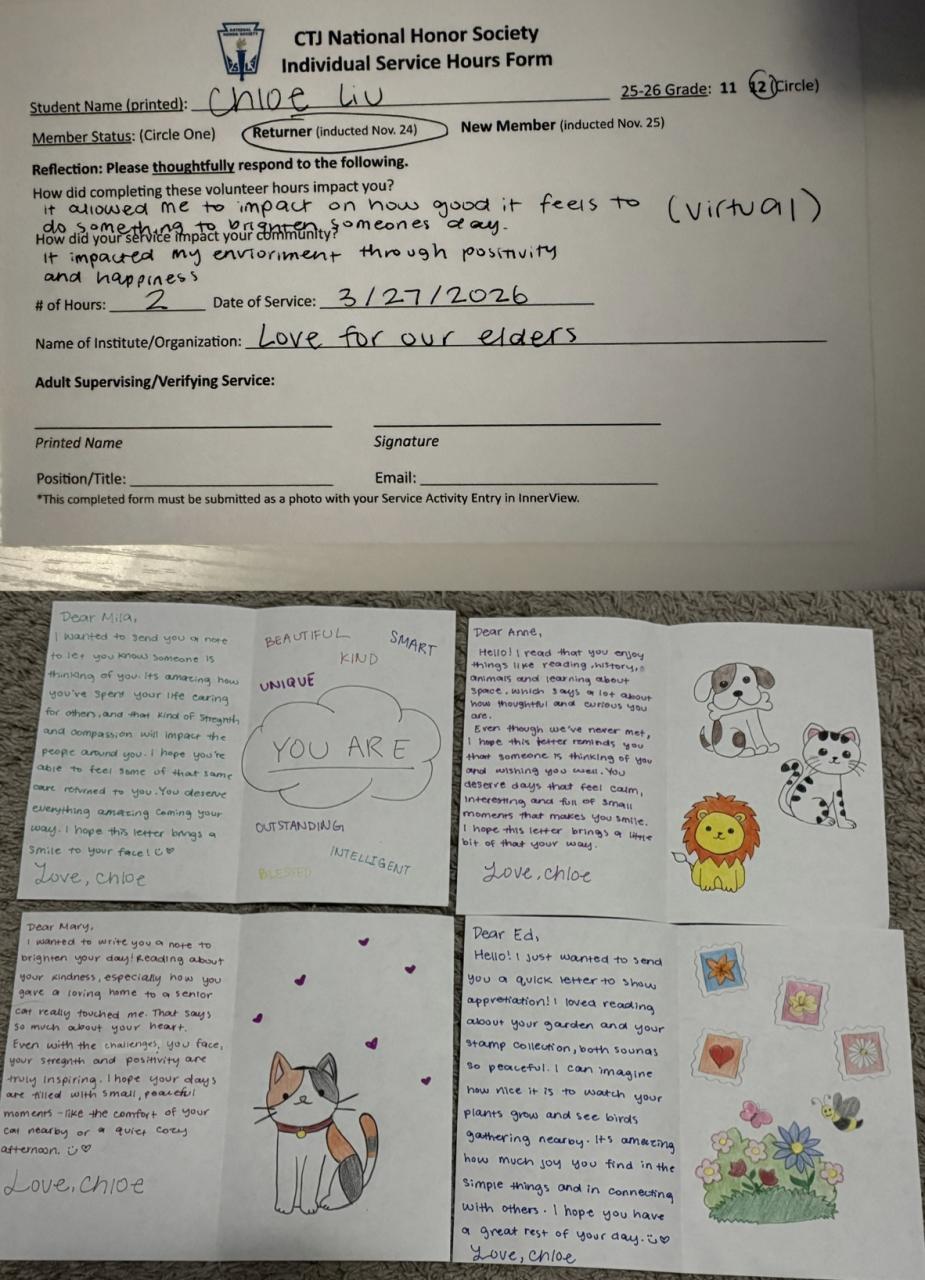 NATIONAL
HONOR SOCIETY
CTJ National Honor Society
Individual Service Hours Form
Student Name (printed): Chloe Liu 25-26 Grade: 11 12 (Circle)
Member Status: (Circle One) Returner (inducted Nov. 24) New Member (inducted Nov. 25)
Reflection: Please thoughtfully respond to the following.
How did completing these volunteer hours impact you?
it allowed me to impact on how good it feels to (virtual)
do something to brighten someones day.
How did your service impact your community?
It impacted my envioriment through positivity
and happiness
# of Hours: 2 Date of Service: 3/27/2026
Name of Institute/Organization: Love for our elders
Adult Supervising/Verifying Service:
Printed Name Signature
Position/Title: Email:
*This completed form must be submitted as a photo with your Service Activity Entry in InnerView.
Dear Mila,
I wanted to send you a note
to let you know someone is
thinking of you. Its amazing how
you've spent your life caring
for others, and that kind of stregnth
and compassion will impact the
people around you. I hope you're
able to feel some of that same
care returned to you. You deserve
everything amazing coming your
way. I hope this letter brings a
smile to your face!
Love, Chloe
BEAUTIFUL
SMART
KIND
UNIQUE
YOU ARE
OUTSTANDING
INTELLIGENT
BLESSED
Dear Anne,
Hello! I read that you enjoy
things like reading, history,
animals and learning about
space, which says a lot about
how thoughtful and curious you
are.
Even though we've never met,
I hope this letter reminds you
that someone is thinking of you
and wishing you well. You
deserve days that feel calm,
interesting and full of small
moments that makes you smile.
I hope this letter brings a little
bit of that your way.
Love, Chloe
Dear Mary,
I wanted to write you a note to
brighten your day! Reading about
your kindness, especially how you
gave a loving home to a senior
cat really touched me. That says
so much about your heart.
Even with the challenges, you face,
your stregnth and positivity are
truly inspiring. I hope your days
are filled with small, peaceful
moments - like the comfort of your
cat nearby or a quiet cozy
afternoon.
Love, Chloe
Dear Ed,
Hello! I just wanted to send
you a quick letter to show
appretiation! I loved reading
about your garden and your
stamp collection, both sounds
so peaceful. I can imagine
how nice it is to watch your
plants grow and see birds
gathering nearby. Its amazing
how much joy you find in the
simple things and in connecting
with others. I hope you have
a great rest of your day.
Love, Chloe